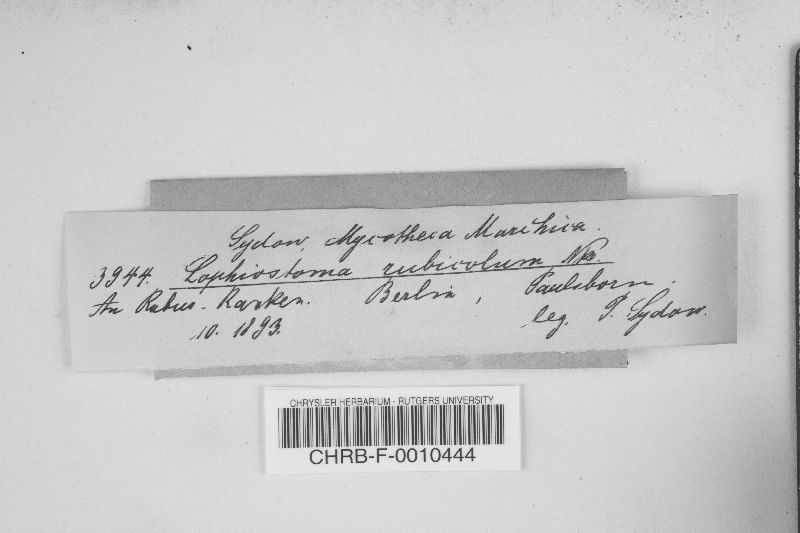 Sydow, Mycotheca Marchica.
3944. Lophiostoma rubicolum
An Rubus-Ranken. Berlin, Paulsborn.
10. 1893. leg. P. Sydow.
CHRYSLER HERBARIUM - RUTGERS UNIVERSITY
CHRB-F-0010444